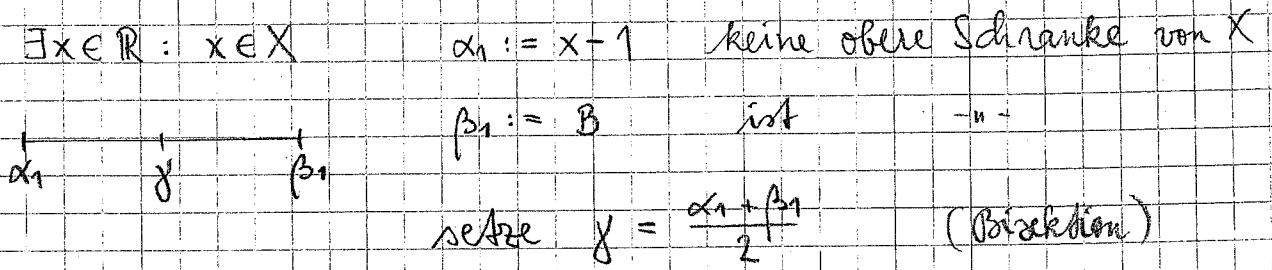 ∃x ∈ ℝ : x ∈ X α₁ := x - 1 keine obere Schranke von X
β₁ := B ist -"-
α₁ γ β₁
setze γ = (α₁ + β₁)/2 (Bisektion)